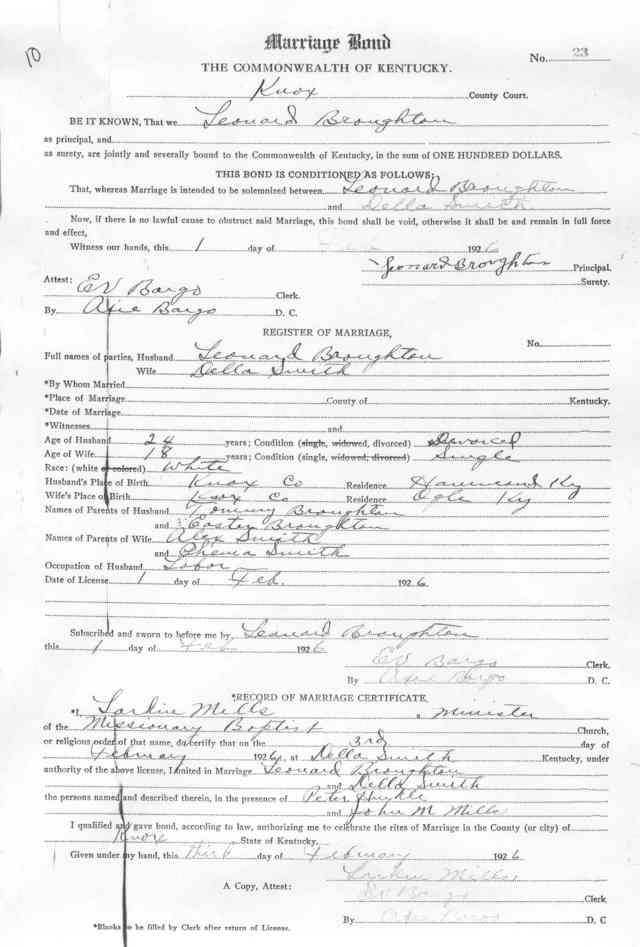 10
Marriage Bond
No. 23
THE COMMONWEALTH OF KENTUCKY.
Knox County Court.
BE IT KNOWN, That we Leonard Broughton
as principal, and
as surety, are jointly and severally bound to the Commonwealth of Kentucky, in the sum of ONE HUNDRED DOLLARS.
THIS BOND IS CONDITIONED AS FOLLOWS:
That, whereas Marriage is intended to be solemnized between Leonard Broughton
and Della Smith
Now, if there is no lawful cause to obstruct said Marriage, this bond shall be void, otherwise it shall be and remain in full force
and effect,
Witness our hands, this 1 day of 1926
Leonard Broughton Principal.
Surety.
Attest: EV Bargo Clerk.
By Axie Bargo D. C.
REGISTER OF MARRIAGE,
No.
Full names of parties, Husband Leonard Broughton
Wife Della Smith
*By Whom Married
*Place of Marriage County of Kentucky.
*Date of Marriage
*Witnesses and
Age of Husband 24 years; Condition (single, widowed, divorced) Divorced
Age of Wife 18 years; Condition (single, widowed, divorced) Single
Race: (white or colored) White
Husband's Place of Birth Knox Co Residence Hammond Ky
Wife's Place of Birth Knox Co Residence Ogle Ky
Names of Parents of Husband Tommy Broughton
and Easter Broughton
Names of Parents of Wife Alex Smith
and Chema Smith
Occupation of Husband Labor
Date of License 1 day of Feb. 1926.
Subscribed and sworn to before me by Leonard Broughton
this 1 day of Feb 1926
EV Bargo Clerk,
By Axie Bargo D. C.
*RECORD OF MARRIAGE CERTIFICATE,
*I, Larkin Mills, Minister
of the Missionary Baptist Church,
or religious order of that name, do certify that on the 3rd day of
February 1926, at Della Smith Kentucky, under
authority of the above license, I united in Marriage Leonard Broughton
and Della Smith
the persons named and described therein, in the presence of Peter
and John M Mills
I qualified and gave bond, according to law, authorizing me to celebrate the rites of Marriage in the County (or city) of
Knox State of Kentucky.
Given under my hand, this third day of February 1926
Larkin Mills
A Copy, Attest: EV Bargo Clerk
By Axie Bargo D. C
*Blanks to be filled by Clerk after return of License.